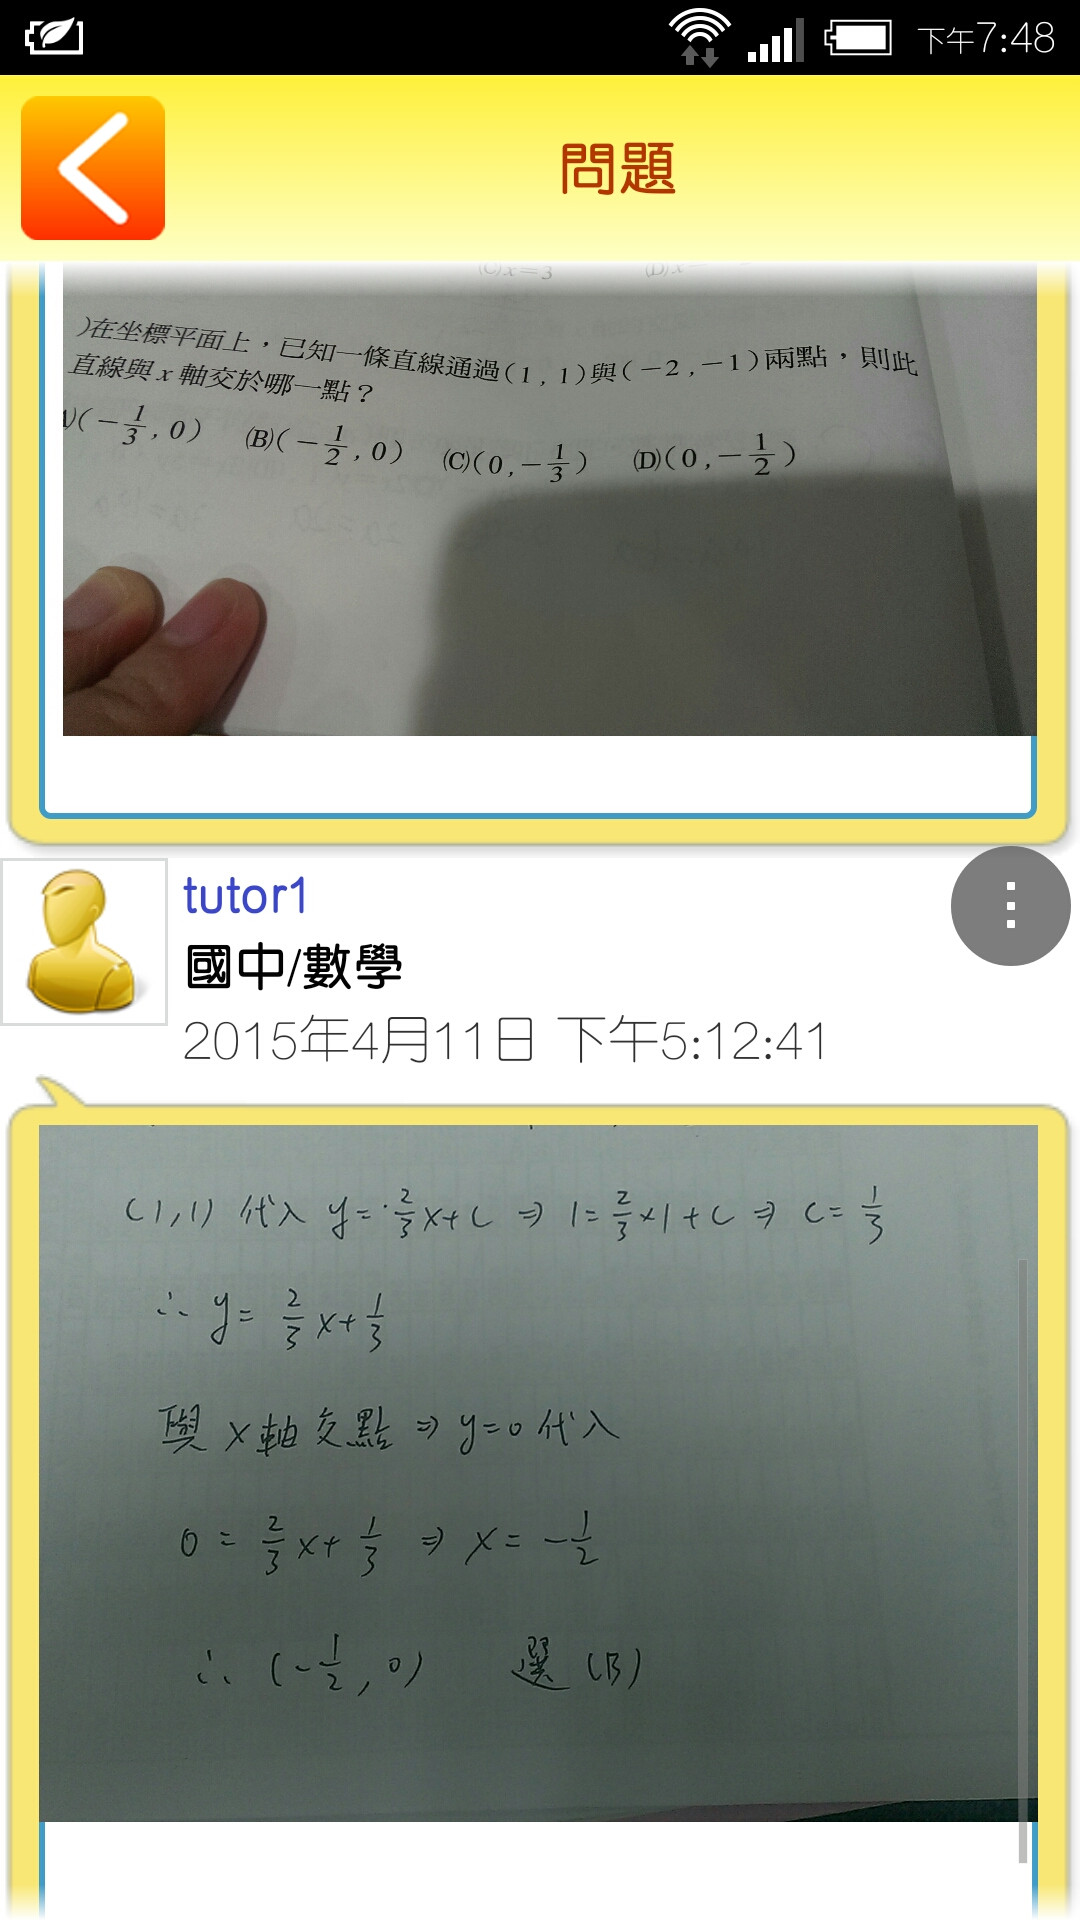 下午7:48
問題
(C)x=3
)在坐標平面上，已知一條直線通過(1, 1)與(-2, -1)兩點，則此
直線與x軸交於哪一點？
A)(-1/3, 0) (B)(-1/2, 0) (C)(0, -1/3) (D)(0, -1/2)
tutor1
國中/數學
2015年4月11日 下午5:12:41
(1,1) 代入 y=2/3x+c ⇒ 1=2/3×1+c ⇒ c=1/3
∴ y=2/3x+1/3
與x軸交點⇒y=0代入
0=2/3x+1/3 ⇒ x=-1/2
∴ (-1/2, 0) 選(B)